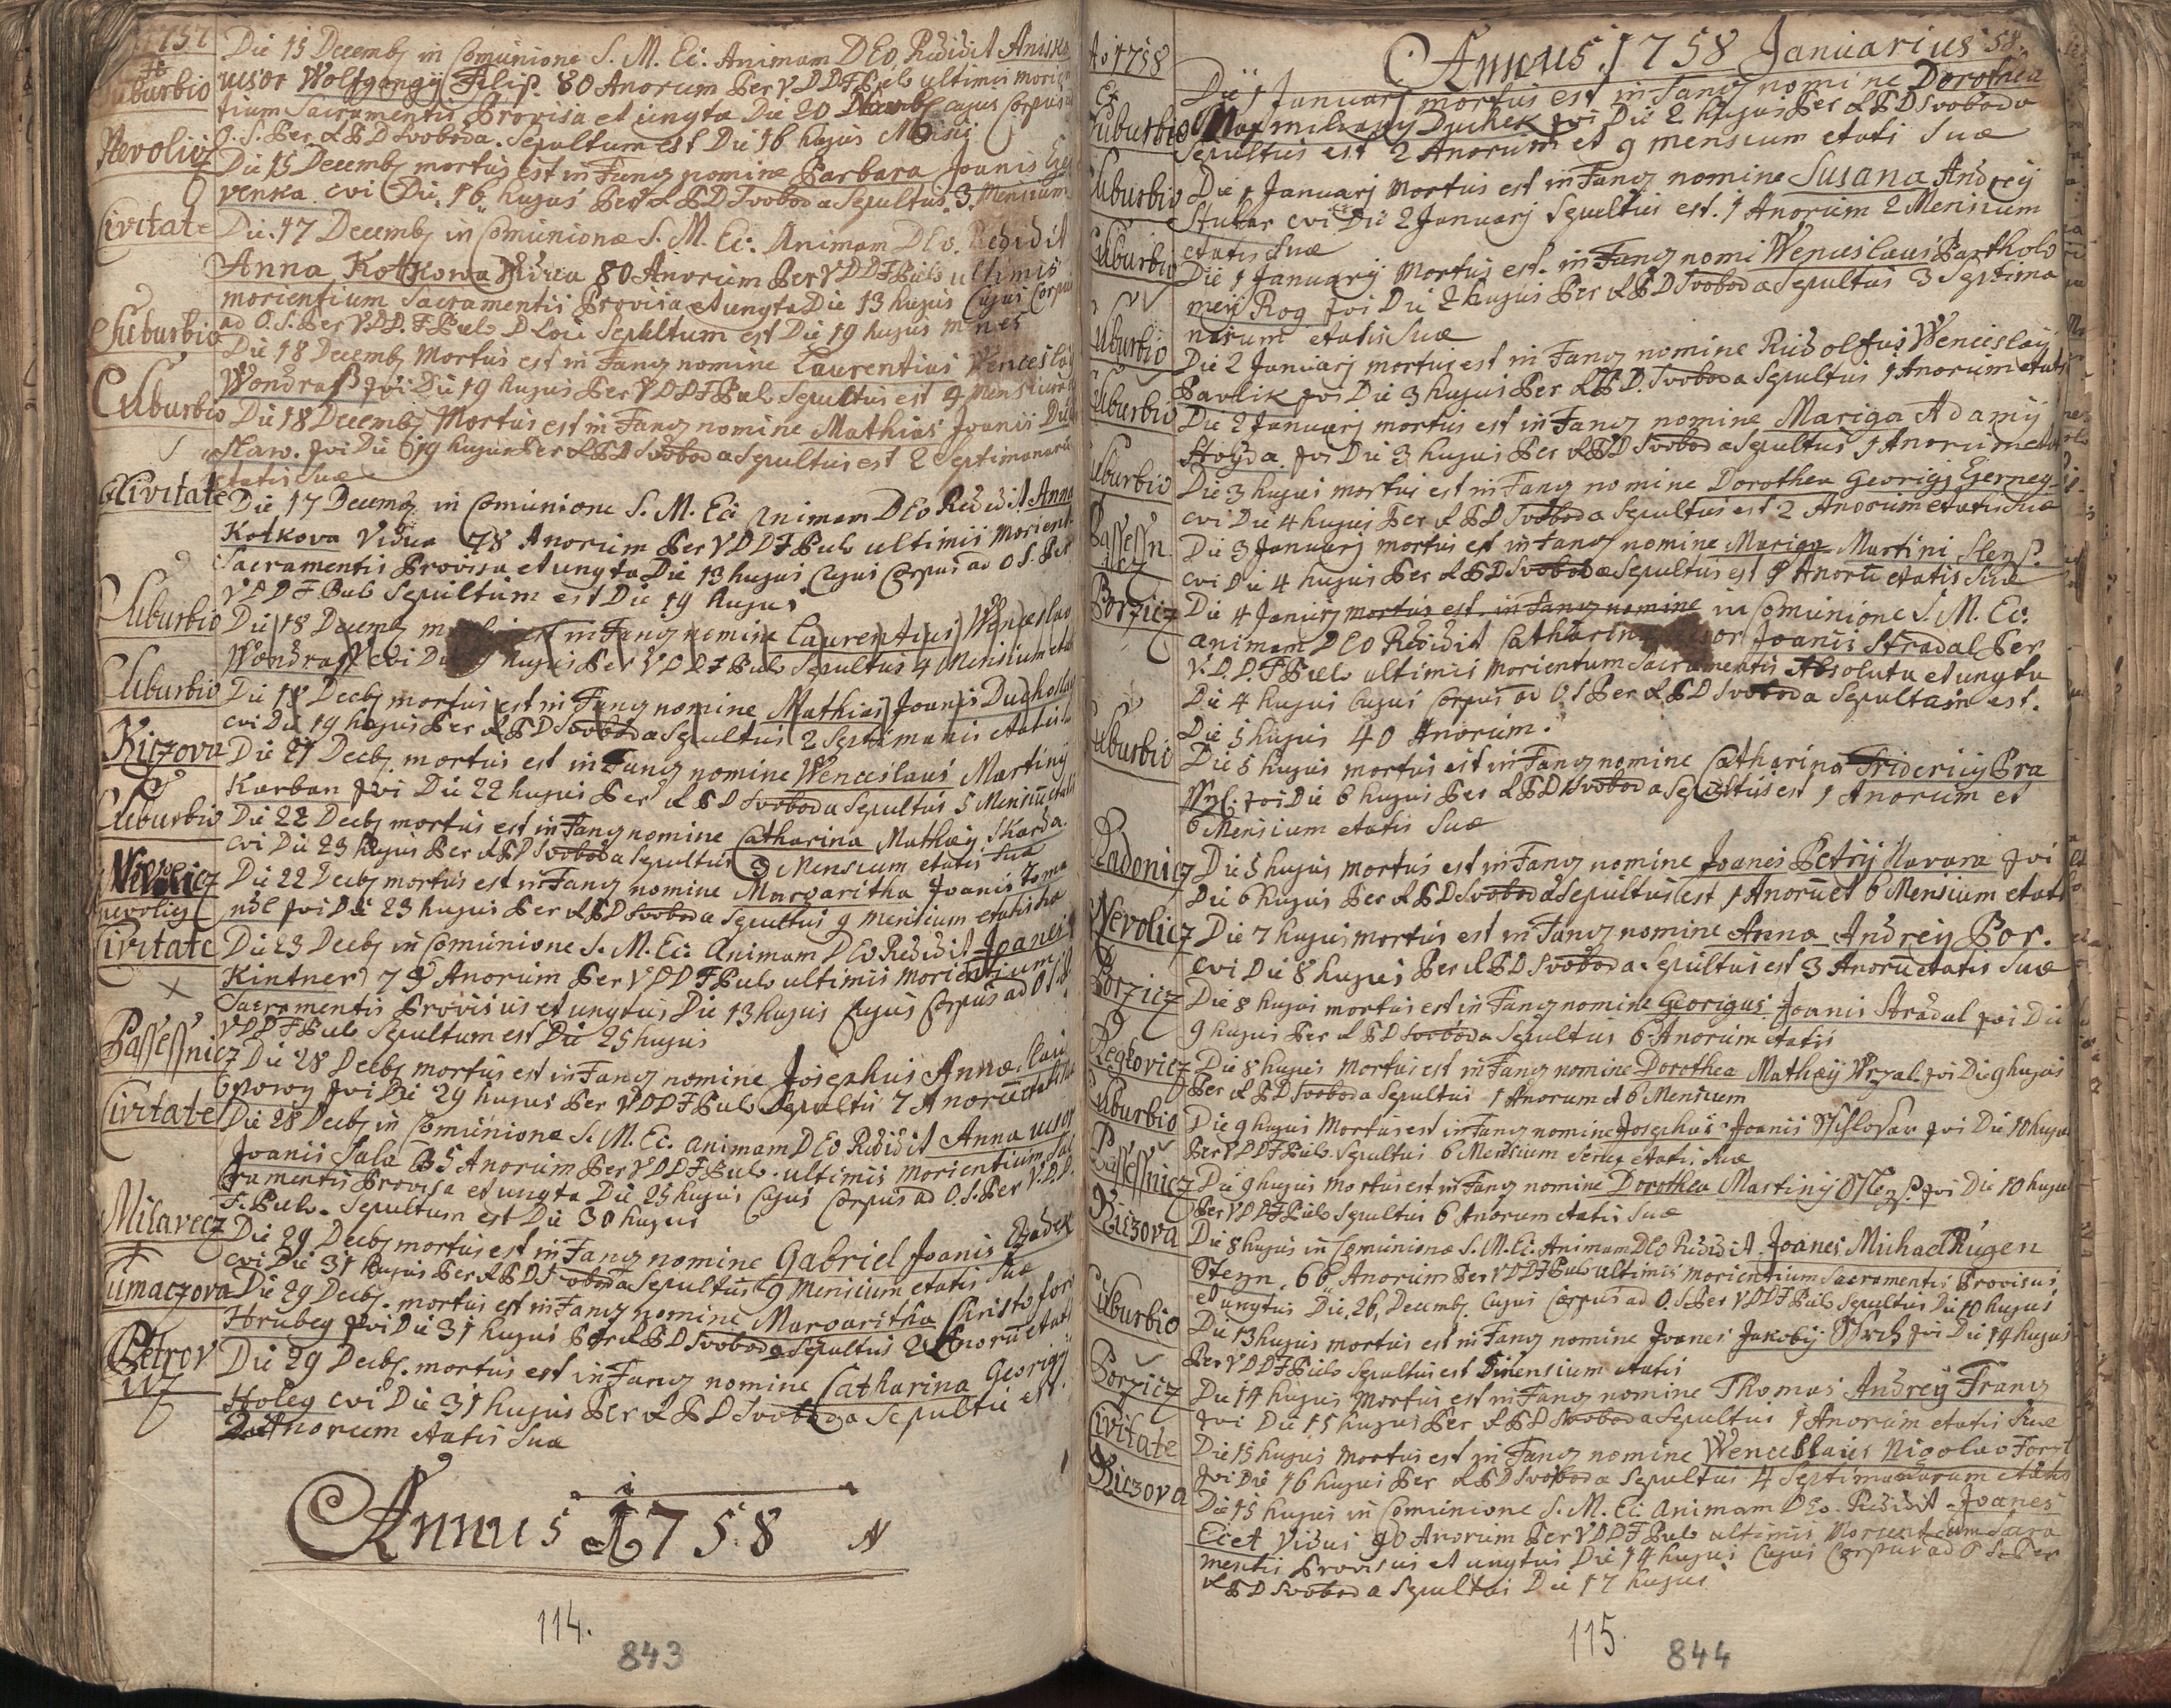 1757
Suburbio
Die 15 Decemb in Comunione S. M. Ec: Animam DEO Redidit
uxor Wolfgangij Filip. 80 Anorum Per V D D F Pulo ultimis morien
tium Sacramentis Provisa et ungta Die 20 cujus Corpus
O. S. Per A P D Svoboda. Sepultum est Die 16 hujus
Nevolicz
Die 15 Decemb mortus est in Fang nomine Barbara Joanis
venka cvi Die 16 hujus Per A P D Svoboda Sepultus. 3. Mensium
Civitate
Die. 17 Decemb in Comunione S. M. Ec: Animam DEo. Redidit
Anna Kotkowa Vidua 80 Anorum Per V D D F Pulo ultimis
morientium Sacramentis Provisa et ungta Die 13 hujus Cujus Corpus
ad O. S. Per V D D. F Pulo D Loci Sepultum est Die 19 hujus
Suburbio
Die 18 Decemb Mortus est in Fang nomine Laurentius Wenceslai
Wondrass Die 19 hujus Per V D D F Pulo Sepultus est 4 Mensium
Suburbio
Die 18 Decemb Mortus est in Fang nomine Mathias Joanis
slaw. Die 19 hujus Per A P D Svoboda Sepultus est 2 Septimanaru
etatis Suæ
Civitate
Die 17 Decemb in Comunione S. M. Ec: Animam DEo Redidit Anna
Kotkova Vidua 78 Anorum Per V D D F Pulo ultimis Morient.
Sacramentis Provisa et ungta Die 13 hujus Cujus Corpus ad O S. Per
V D D F Pulo Sepultum est Die 19 hujus
Suburbio
Die 18 Decemb est in Fang nomine Laurentius Wenceslao
Wondrass cvi Die hujus Per V D D F Pulo Sepultus 4 Mensium
Suburbio
Die 18 Decb mortus est in Fang nomine Mathias Joanis
cvi Die 19 hujus Per A P D Svoboda Sepultus 2 Septimanis etatis
Kiczova
Die 21 Decb. mortus est in Fang nomine Wenceslaus Martiny
Karban Die 22 hujus Per A P D Svoboda Sepultus 5 Mensiu
Suburbio
Die 22 Decb mortus est in Fang nomine Catharina Mathæy Skarda.
cvi Die 23 hujus Per A P D Svoboda Sepultus 3 Mensium etatis Suæ
nevolicz
Die 22 Decb mortus est in Fang nomine Margaritha Joanis
Die 23 hujus Per A P D Svoboda Sepultus 9 mensium etatis
Civitate
Die 23 Decb in Comunione S. M. Ec: Animam DEo Redidit Joanes
Kintner 79 Anorum Per V D D F Pulo ultimis Morientium
Sacramentis Provisus et ungtus Die 13 hujus Cujus Corpus ad O S
V D D F Pulo Sepultum est Die 25 hujus
Passessnicz
Die 28 Decb mortus est in Fang nomine Josephus Annæ
Die 29 hujus Per V D D F Pulo Sepultus 7 Anoru
Civitate
Die 28 Decb in Comunione S. M. Ec: animam DEo Redidit Anna uxor
Joanis Sala 35 Anorum Per V D D F Pulo. ultimis morientium Sac
ramentis Provisa et ungta Die 25 hujus Cujus Corpus ad O. S. Per V. D. D.
F. Pulo. Sepultum est Die 30 hujus
Milavecz
Die 29 Decb mortus est in Fang nomine Gabriel Joanis
cvi Die 31 hujus Per A P D Svoboda Sepultus 9 Mensium etatis Suæ
Tumaczova
Die 29 Decb. mortus est in Fang nomine Margaritha Christofori
Hrubey Die 31 hujus Per A P D Svoboda Sepultus 2 Anoru etatis
Petrov
icz
Die 29 Decb. mortus est in Fang nomine Catharina Georigij
Holey cvi Die 31 hujus Per A P D Svoboda Sepultu est.
2 Anorum etatis Suæ
Annus 1758
114.
843
Ao 1758
Annus 1758 Januarius
Ex
Suburbio
Die 1 Januarj mortus est in Fang nomine Dorothea
Maxmiliany Duchek Die 2 hujus Per A P D Svoboda
Sepultus est 2 Anorum et 9 mensium etatis Suæ
Suburbio
Die 1 Januarj mortus est in Fang nomine Susana Andrey
Stukar cvi Die 2 Januarj Sepultus est. 1 Anorum 2 Mensium
etatis Suæ
Suburbio
Die 1 Januarij Mortus est. in Fang nomi Wenceslaus Partholo
mey Rog Die 2 hujus Per A P D Svoboda Sepultus 3 Septima
narum etatis Suæ
Suburbio
Die 2 Januarj mortus est in Fang nomine Rudolfus Wenceslay
Pavlik Die 3 hujus Per A P D. Svoboda Sepultus 1 Anorum etatis
Suburbio
Die 2 Januarj mortus est in Fang nomine Mariga Adamij
Stoyda. Die 3 hujus Per A P D Svoboda Sepultus 1 Anorum
Suburbio
Die 3 hujus mortus est in Fang nomine Dorothea Georigj
cvi Die 4 hujus Per A P D Svoboda Sepultus est 2 Anorum etatis Suæ
Passessn
icz
Die 3 Januarj mortus est in Fang nomine Mariga Martini
cvi Die 4 hujus Per A P D Svoboda Sepultus est 1 Anoru etatis Suæ
Porzicz
Die 4 Januarj mortus est in Fang nomine in Comunione S. M. Ec:
animam DEO Redidit Catharina uxor Joanis Stradal Per
V. D. D. F Pulo ultimis Morientum Sacramentis Absoluta et ungta
Die 4 hujus Cujus Corpus ad O. S Per A P D Svoboda Sepultam est.
Die 5 hujus 40 Anorum.
Suburbio
Die 5 hujus mortus est in Fang nomine Catharina Fridericij Pra
Die 6 hujus Per A P D Svoboda Sepultus est 1 Anorum et
6 Mensium etatis Suæ
Radonicz
Die 5 hujus mortus est in Fang nomine Joanes Petrij Navara
Die 6 hujus Per A P D Svoboda Sepultus est 1 Anoru et 6 Mensium etat
Nevolicz
Die 7 hujus mortus est in Fang nomine Anna Andrey Por.
cvi Die 8 hujus Per A P D Svoboda Sepultus est 3 Anoru etatis Suæ
Porzicz
Die 8 hujus mortus est in Fang nomine Georigus Joanis Stradal Die
9 hujus Per A P D Svoboda Sepultus 6 Anorum etatis
Regkovicz
Die 8 hujus Mortus est in Fang nomine Dorothea Mathæy Wrzal. Die 9 hujus
Per A P D Svoboda Sepultus 1 Anorum et 6 Mensium
Suburbio
Die 9 hujus Mortus est in Fang nomine Josephus Joanis Schlosar Die 10 hujus
Per V D D F Pulo Sepultus 6 Mensium etatis Suæ
Passessnicz
Die 9 hujus Mortus est in Fang nomine Dorothea Martiny Die 10 hujus
Per V D D F Pulo Sepultus 6 Anorum etatis Suæ
Kiczova
Die 8 hujus in Comunione S. M. Ec: Animam DEO Redidit. Joanes Michael Rugen
Steyn. 66 Anorum Per V D D F Pulo ultimis morientium Sacramentis Provisus
et ungtus Die. 26, Decemb. Cujus Corpus ad O. S. Per V D D F Pulo Sepultus Die 10 hujus
Suburbio
Die 13 hujus mortus est in Fang nomine Joanes Jakobij Die 14 hujus
Per V D D F Pulo Sepultus est mensium etatis
Porzicz
Die 14 hujus Mortus est in Fang nomine Thomas Andrey Franz
Die 15 hujus Per A P D Svoboda Sepultus 1 Anorum etatis Suæ
Civitate
Die 15 hujus Mortus est in Fang nomine Wenceslaus Nigolao
Die 16 hujus Per A P D Svoboda Sepultus 4 Septimanarum etatis
Kiczova
Die 15 hujus in Comunione S. M. Ec: animam DEo. Redidit. Joanes
Eiet Vidus 90 Anorum Per V D D F Pulo ultimis Morientium Sacra
mentis Provisus et ungtus Die 14 hujus Cujus Corpus ad O S. Per
A P D Svoboda Sepultus Die 17 hujus
115.
844